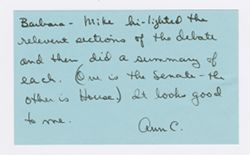 Barbara - Mike hi-lighted the
relevent sections of the debate
and then did a summary of
each. (One is the Senate - the
other is House.) It looks good
to me.
Ann C.